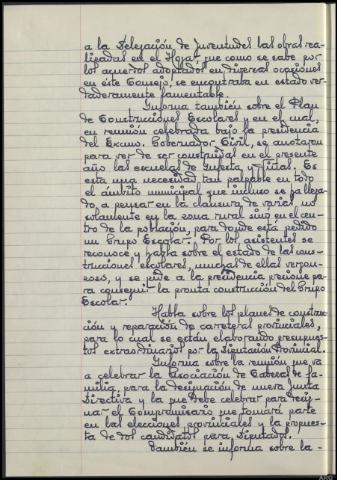 a la Delegación de Juventudes las obras rea-
lizadas en el Hogar que como se sabe por
los acuerdos adoptados en diversas ocasiones
en este Consejo, se encontraba en estado ver-
daderamente lamentable.
Informa también sobre el Plan
de Construcciones Escolares y en el cual,
en reunión celebrada bajo la presidencia
del Excmo. Gobernador Civil, se anotaron
para ver de ser construidas en el presente
año las escuelas de
esta una necesidad tan palpable en todo
el ámbito municipal que incluso se ha llega-
do a pensar en la clausura de varias no
solamente en la zona rural sino en el cen-
tro de la población, para donde está pedido
un Grupo Escolar. Por los asistentes se
reconoce y habla sobre el estado de las cons-
trucciones escolares, muchas de ellas vergon-
zosas, y se pide a la presidencia presione pa-
ra conseguir la pronta construcción del Grupo
Escolar.
Habla sobre los planes de construc-
ción y reparación de carreteras provinciales,
para lo cual se están elaborando presupues-
tos extraordinarios por la Diputación Provincial.
Informa sobre la reunión que va
a celebrar la Asociación de Cabezas de fa-
milia, para la designación de nueva Junta
Directiva y la que debe celebrar para desig-
nar el Compromisario que tomará parte
en las elecciones provinciales y la propues-
ta de dos candidatos para Diputados.
También se informa sobre la